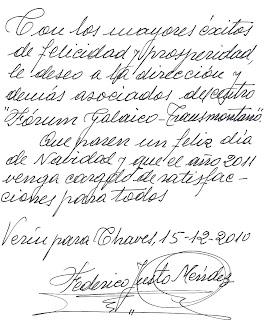 Con los mayores éxitos
de felicidad y prosperidad,
le deseo a la dirección y
demás asociados del centro
"Fórum Galaico-Transmontano".
Que pasen un feliz día
de Navidad y que el año 2011
venga cargado de satisfac-
ciones para todos
Verín para Chaves, 15-12-2010
Federico Justo Méndez